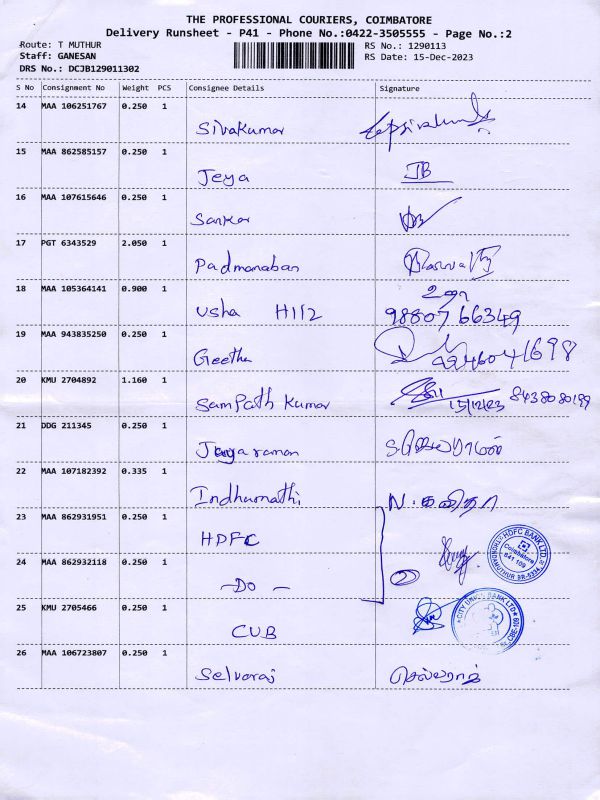 THE PROFESSIONAL COURIERS, COIMBATORE
Delivery Runsheet - P41 - Phone No.:0422-3505555 - Page No.:2
Route: T MUTHUR RS No.: 1290113
Staff: GANESAN RS Date: 15-Dec-2023
DRS No.: DCJB129011302
S No Consignment No Weight PCS Consignee Details Signature
14 MAA 106251767 0.250 1
Sivakumar
15 MAA 862585157 0.250 1
Jeya JB
16 MAA 107615646 0.250 1
Sankar
17 PGT 6343529 2.050 1
Padmanaban
18 MAA 105364141 0.900 1
உஷா
Usha H112 98807 66349
19 MAA 943835250 0.250 1
Geetha
20 KMU 2704892 1.160 1
Sampath Kumar 15/12/23 8438080199
21 DDG 211345 0.250 1
Jayaraman
22 MAA 107182392 0.335 1
Indhumathi N. கவிதா
23 MAA 862931951 0.250 1
HDFC
HDFC BANK LTD.
Coimbatore
641 109
24 MAA 862932118 0.250 1
-DO- 2
25 KMU 2705466 0.250 1
CUB
CITY UNION BANK LTD
26 MAA 106723807 0.250 1
Selvaraj செல்வராஜ்